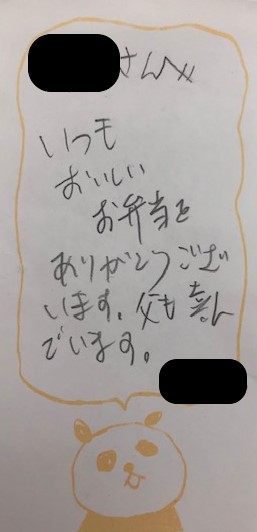 さんへ
いつも
おいしい
お弁当を
ありがとうござ
います。父も喜ん
でいます。